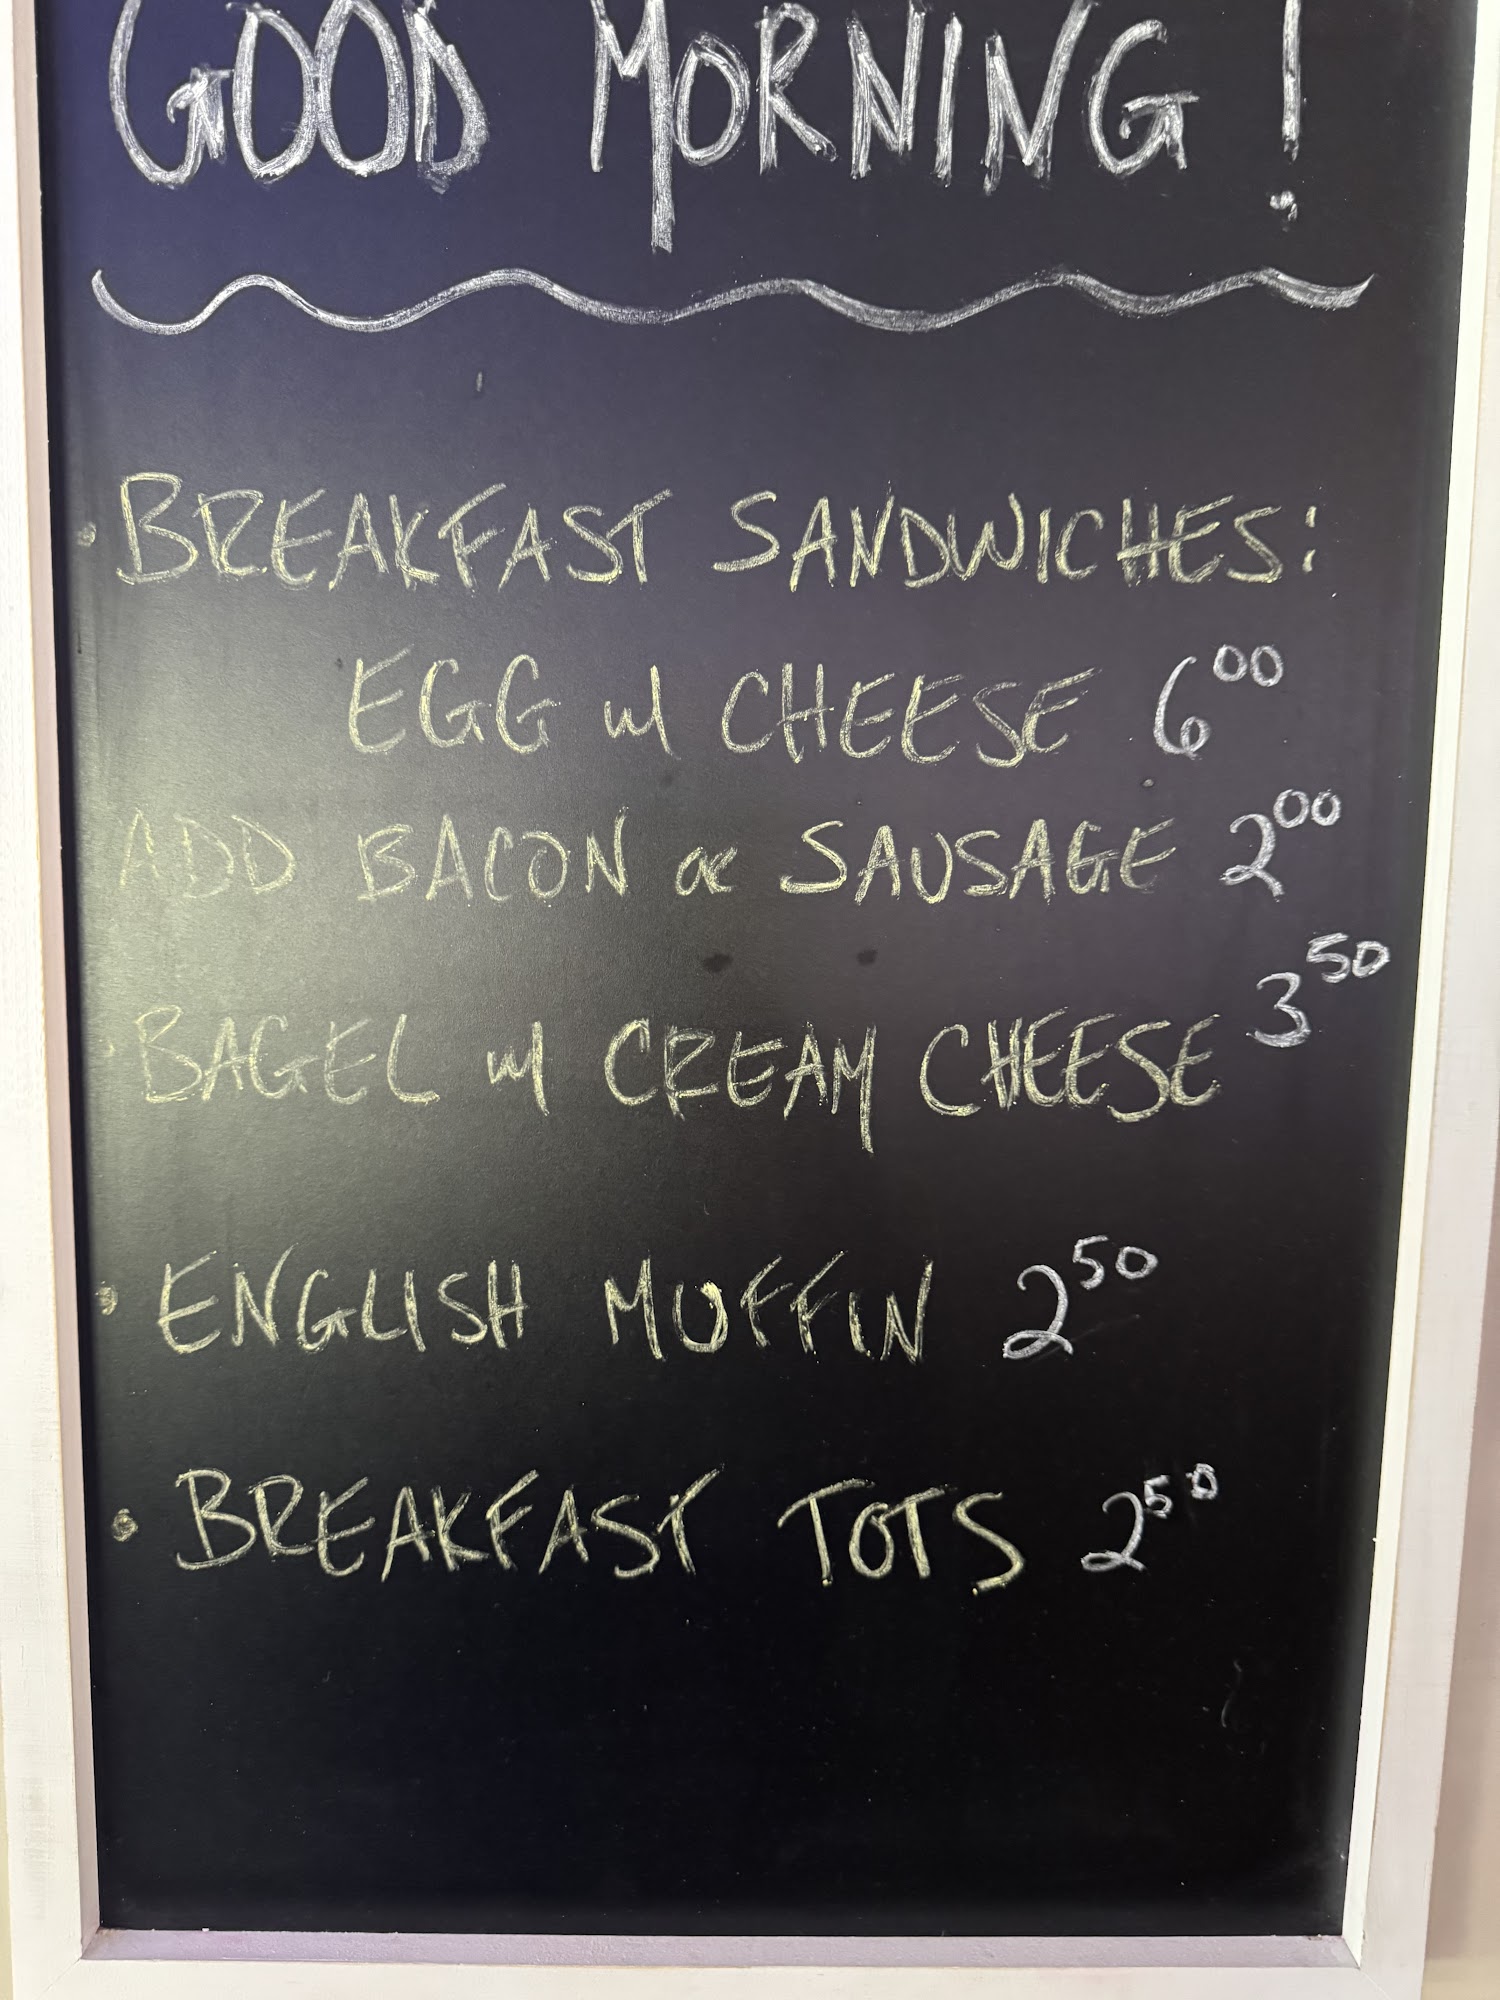 GOOD MORNING!
• BREAKFAST SANDWICHES:
EGG w/ CHEESE 6.00
ADD BACON or SAUSAGE 2.00
• BAGEL w/ CREAM CHEESE 3.50
• ENGLISH MUFFIN 2.50
• BREAKFAST TOTS 2.50